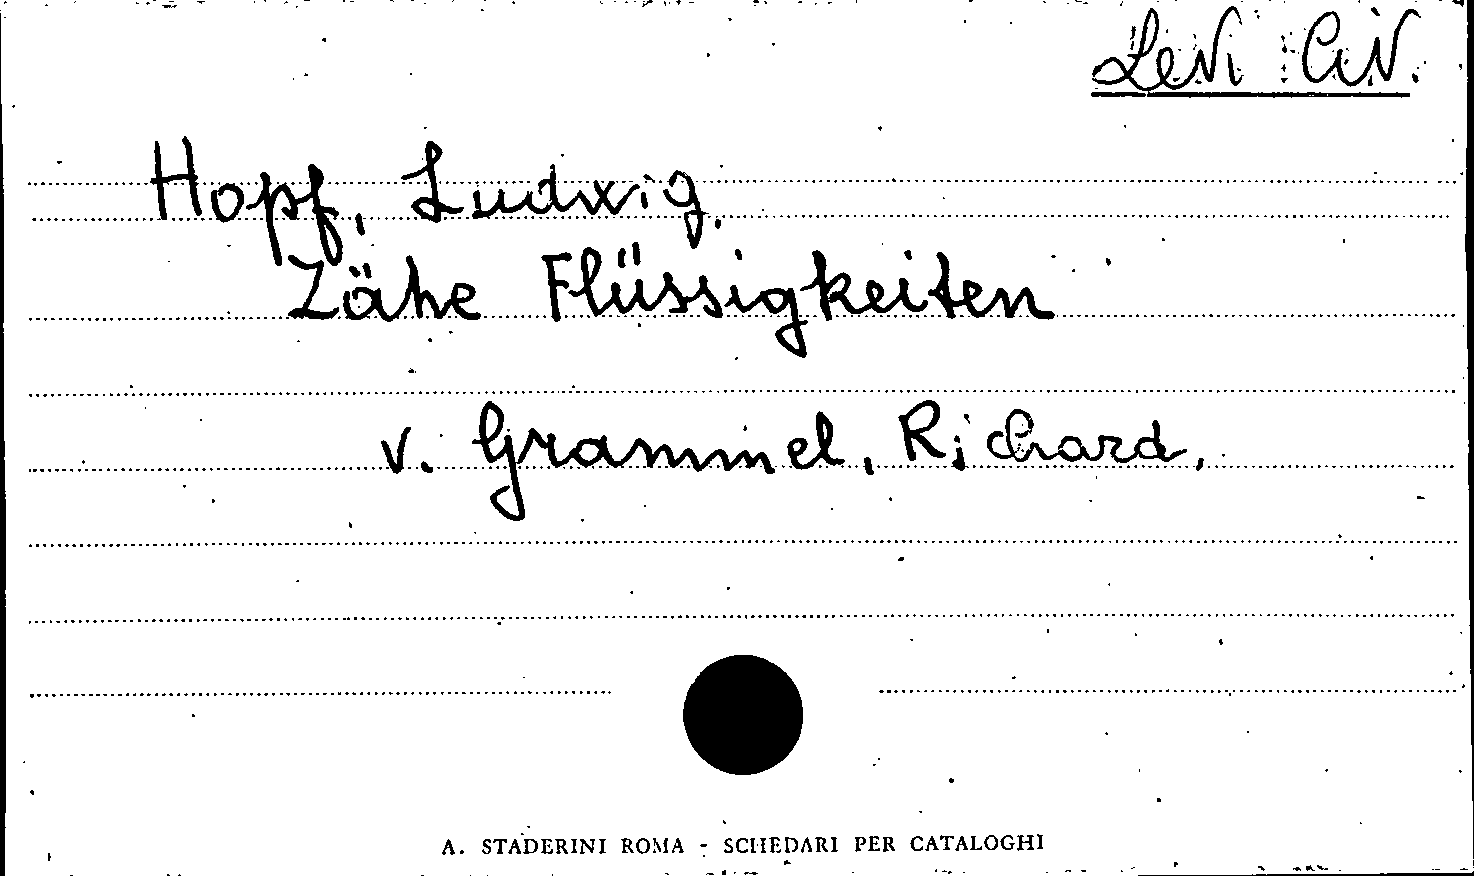 Levi Civ.
Hopf, Ludwig,
Zähe Flüssigkeiten
v. Grammel, Richard,
A. STADERINI ROMA - SCHEDARI PER CATALOGHI